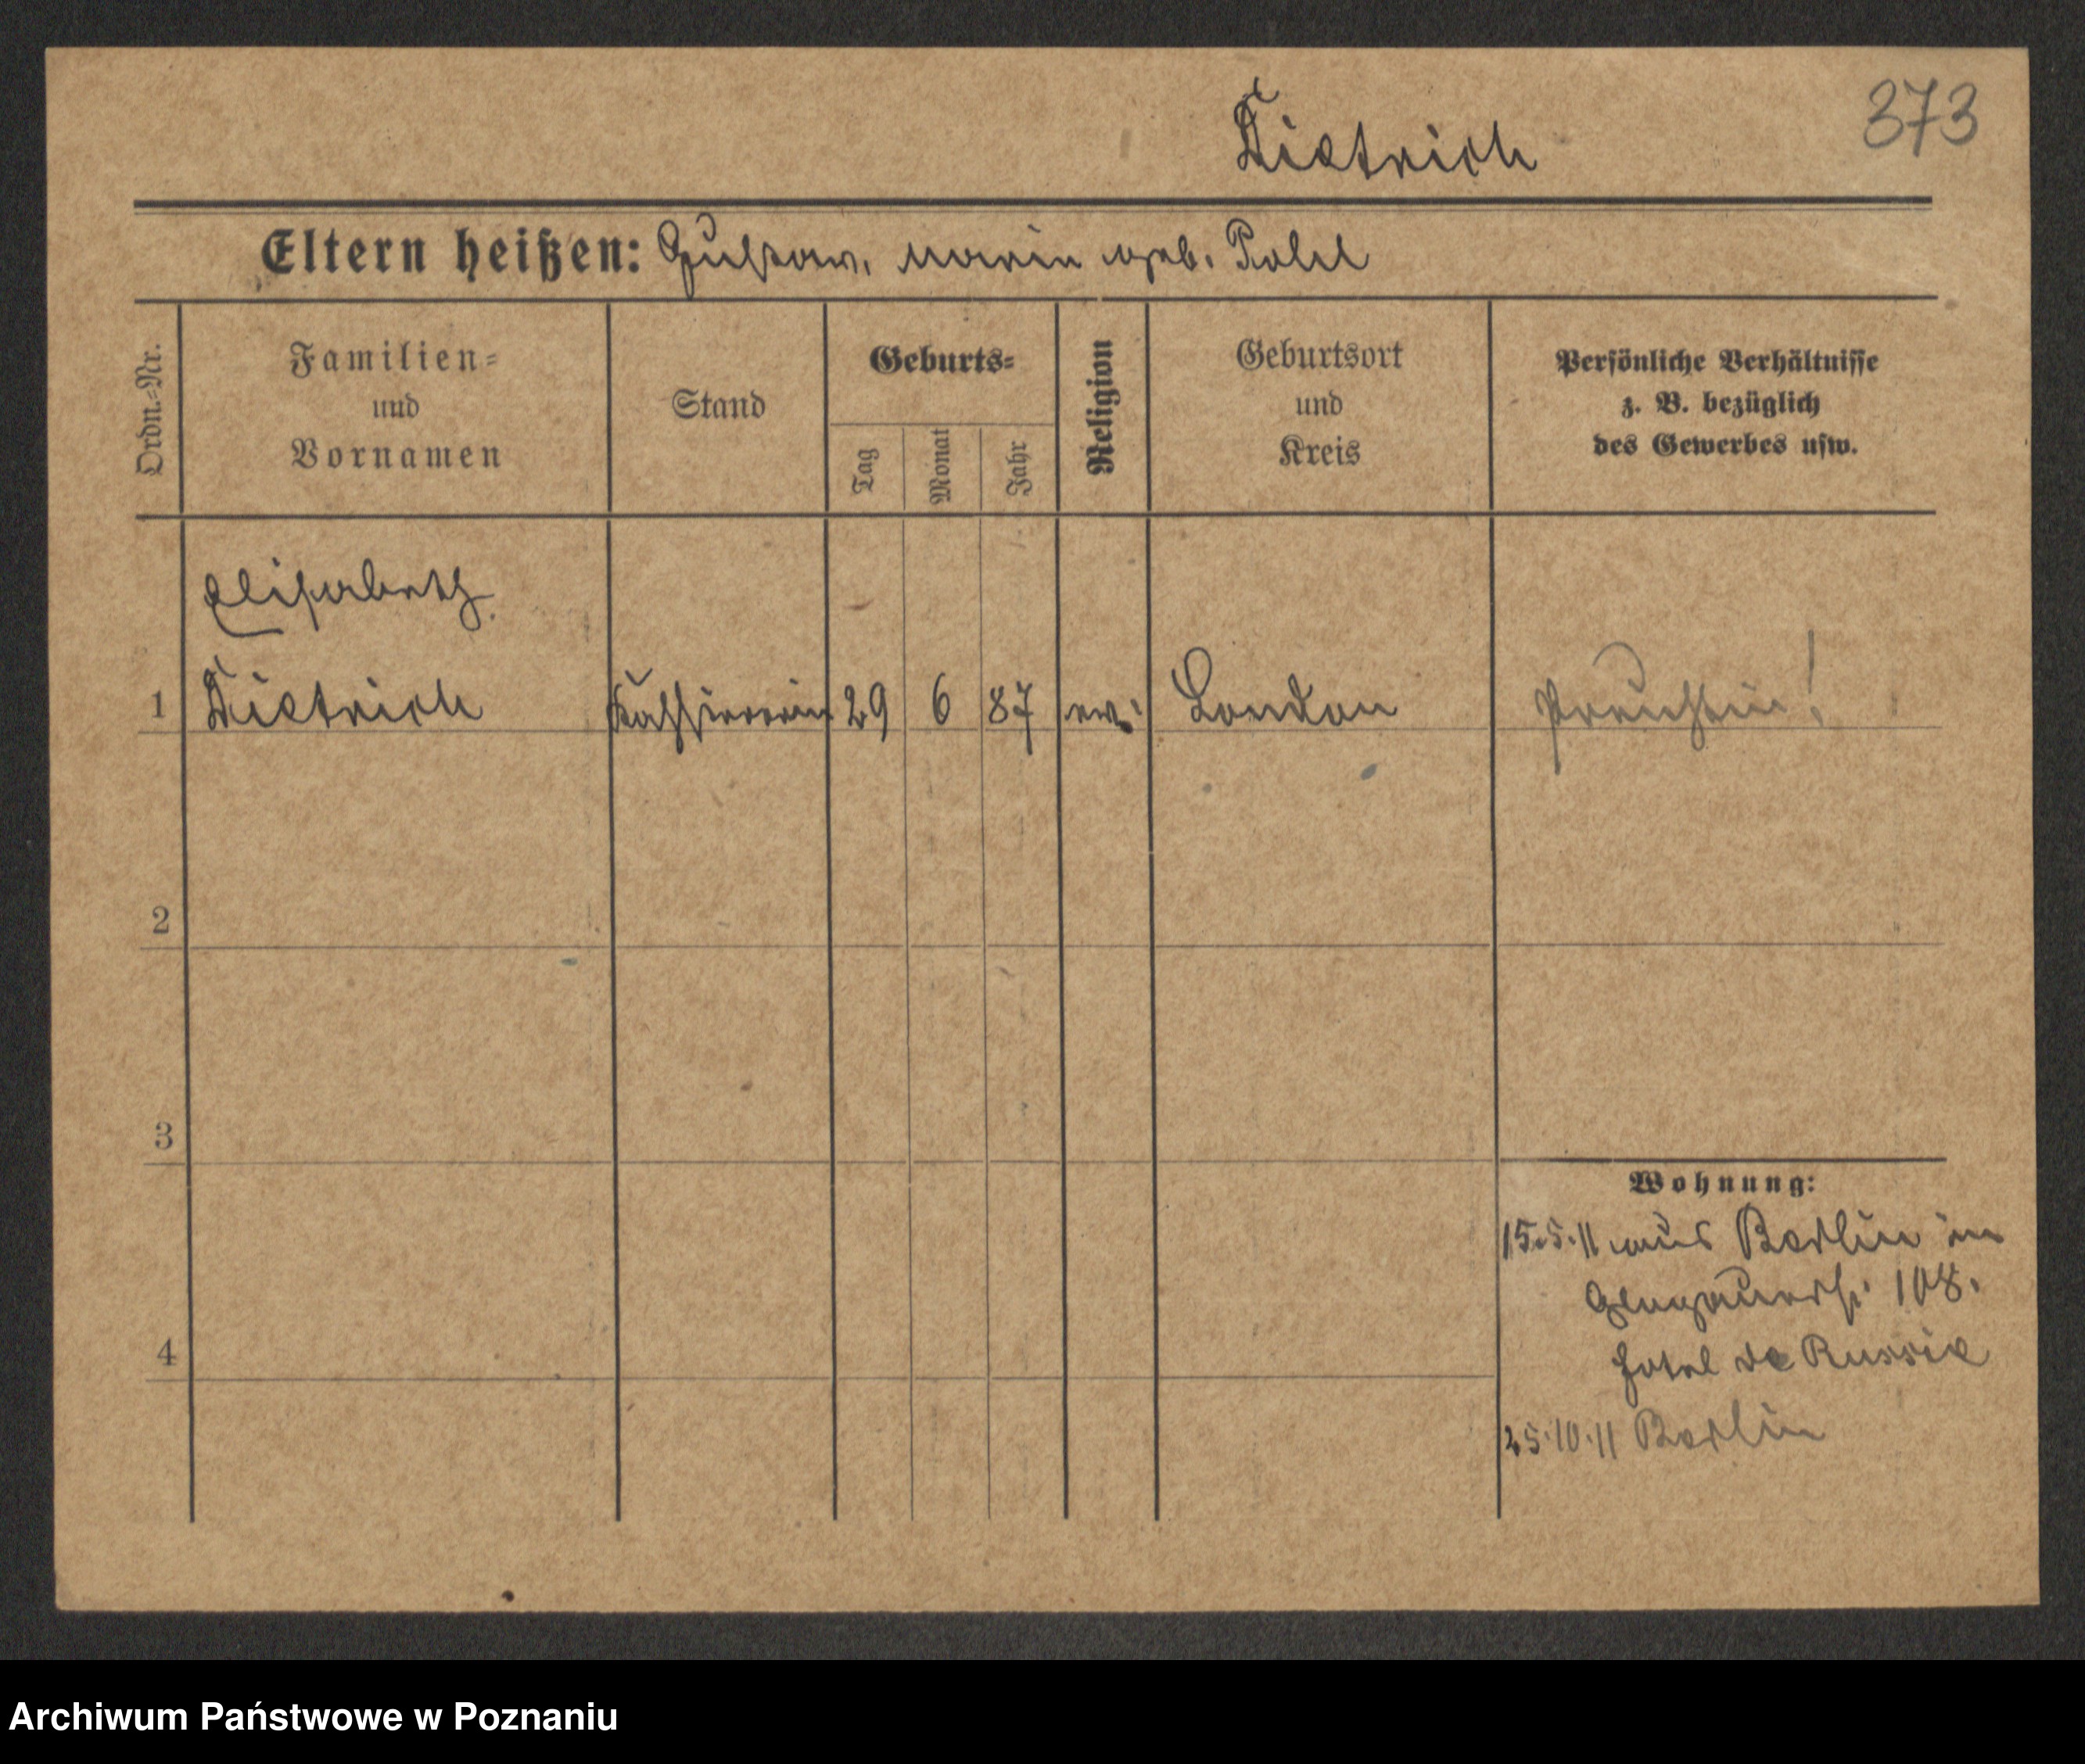 Dietrich
373
Eltern heißen: Gustav, Marie geb. Pohl
Ordn.=Nr.
Familien=
und
Vornamen
Stand
Geburts=
Tag
Monat
Jahr
Religion
Geburtsort
und
Kreis
Persönliche Verhältnisse
z. B. bezüglich
des Gewerbes usw.
Elisabeth
1 Dietrich Kassiererin 29 6 87 ev. London Preußin!
2
3
4
Wohnung:
15.5.11 aus Berlin in
Glogauerstr. 108.
Hotel de Russie
25.10.11 Berlin
Archiwum Państwowe w Poznaniu